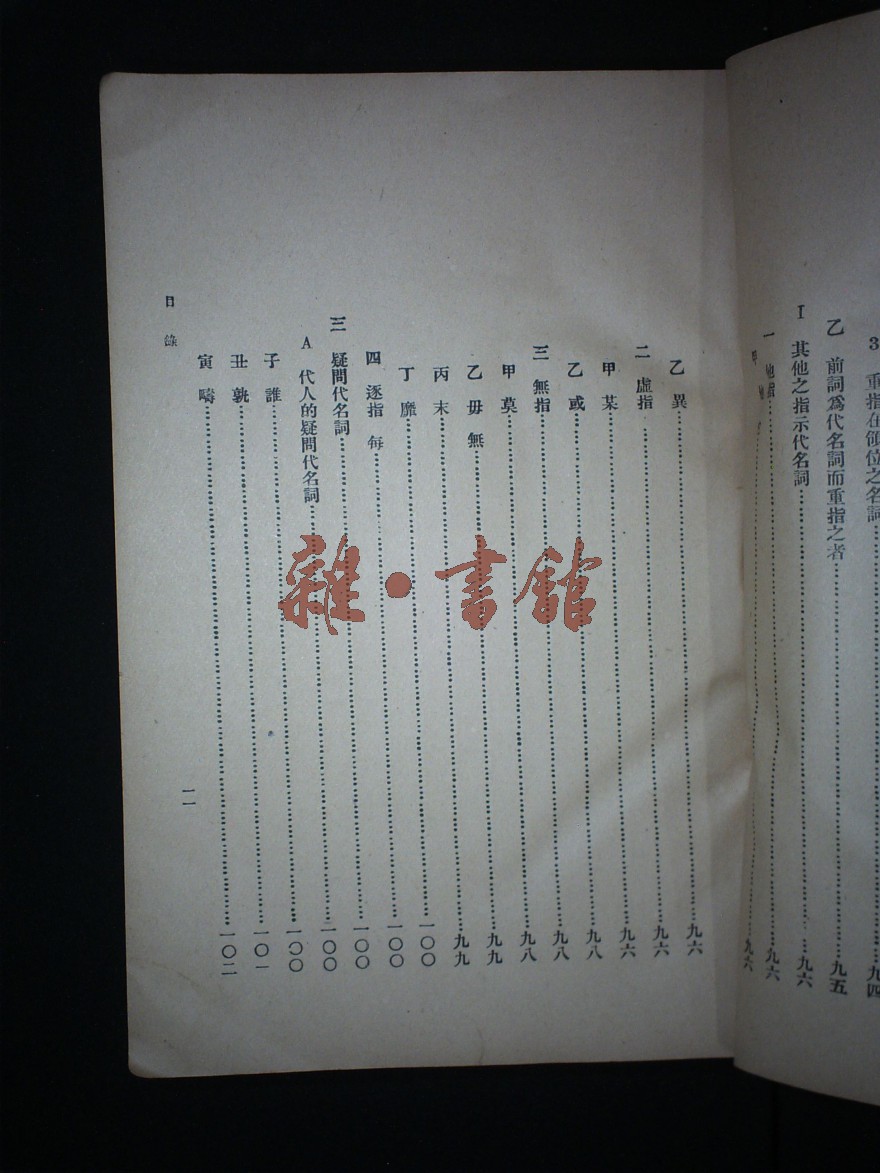 3 重指在領位之名詞……九四
乙 前詞爲代名詞而重指之者……九五
I 其他之指示代名詞……九六
一 他指……九六
甲……九六
乙 異……九六
二 虛指……九六
甲 某……九六
乙 或……九八
三 無指……九八
甲 莫……九八
乙 毋 無……九九
丙 末……九九
丁 靡……一〇〇
四 逐指 每……一〇〇
三 疑問代名詞……一〇〇
A 代人的疑問代名詞……一〇〇
子 誰……一〇〇
丑 孰……一〇一
寅 疇……一〇二
目錄
一一
雜·書館